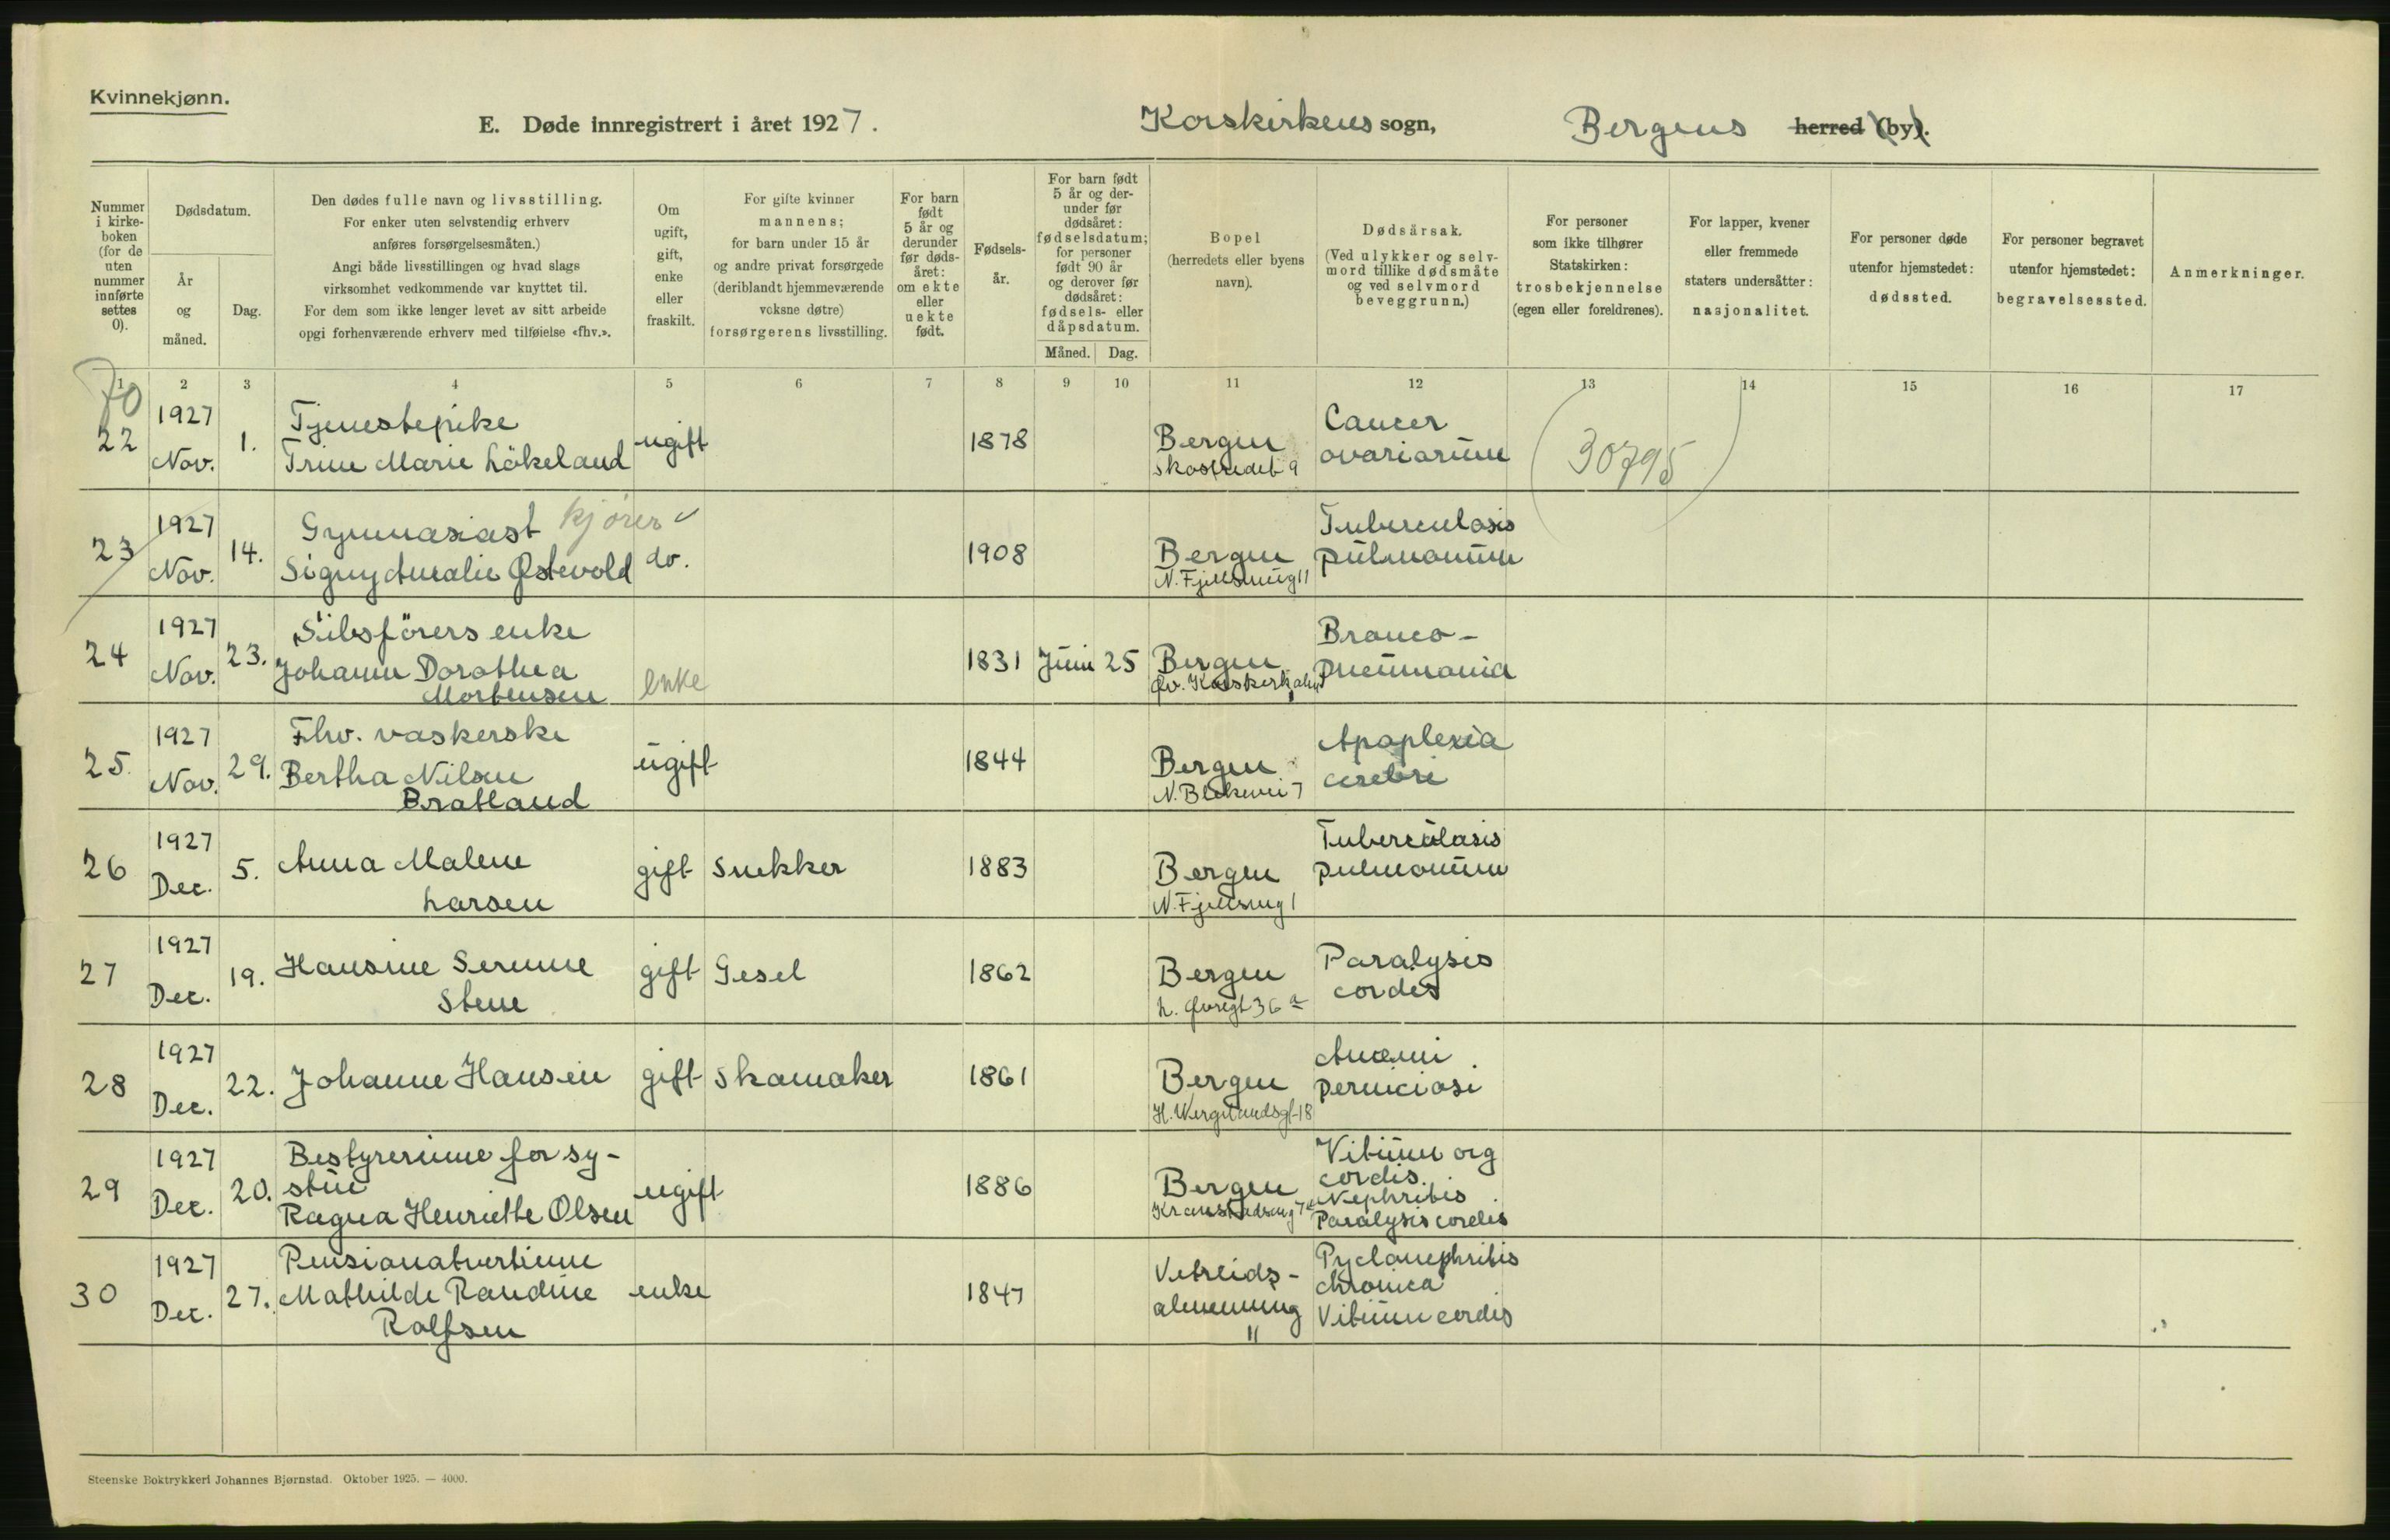 Kvinnekjønn.
E. Døde innregistrert i året 1927.
Korskirkens sogn,
Bergens herred (by).
Nummer
i kirke-
boken
(for de
uten
nummer
innførte
settes
0).
Dødsdatum.
År
og
måned.
Dag.
Den dødes fulle navn og livsstilling.
For enker uten selvstendig erhverv
anføres forsørgelsesmåten.)
Angi både livsstillingen og hvad slags
virksomhet vedkommende var knyttet til.
For dem som ikke lenger levet av sitt arbeide
opgi forhenværende erhverv med tilføielse «fhv.».
Om
ugift,
gift,
enke
eller
fraskilt.
For gifte kvinner
mannens;
for barn under 15 år
og andre privat forsørgede
(deriblandt hjemmeværende
voksne døtre)
forsørgerens livsstilling.
For barn
født
5 år og
derunder
før døds-
året:
om ekte
eller
uekte
født.
Fødsels-
år.
For barn født
5 år og der-
under før
dødsåret:
fødselsdatum;
for personer
født 90 år
og derover før
dødsåret:
fødsels- eller
dåpsdatum.
Måned. Dag.
Bopel
(herredets eller byens
navn).
Dødsårsak.
(Ved ulykker og selv-
mord tillike dødsmåte
og ved selvmord
beveggrunn.)
For personer
som ikke tilhører
Statskirken:
trosbekjennelse
(egen eller foreldrenes).
For lapper, kvener
eller fremmede
staters undersåtter:
nasjonalitet.
For personer døde
utenfor hjemstedet:
dødssted.
For personer begravet
utenfor hjemstedet:
begravelsessted.
Anmerkninger.
1 2 3 4 5 6 7 8 9 10 11 12 13 14 15 16 17
70
22
1927
Nov.
1.
Tjenestepike
Trine Marie Lökeland
ugift
1878
Bergen
Skostredet 9
Cancer
ovariarum
(30795)
23
1927
Nov.
14.
Gymnasiast kjører
Signy Amalie Østevold
do.
1908
Bergen
N. Fjellsmug 11
Tuberculosis
pulmonum
24
1927
Nov.
23.
Skibsförers enke
Johanne Dorothea
Mortensen
enke
1831 Juni 25
Bergen
Øv. Korskirkalm
Bronco-
pneumonia
25.
1927
Nov.
29.
Fhv. vaskerske
Bertha Nilsen
Bratland
ugift
1844
Bergen
N. Blekevei 7
Apoplexia
cerebri
26
1927
Dec.
5.
Anna Malene
Larsen
gift
Snekker
1883
Bergen
N. Fjellsmug 1
Tuberculosis
pulmonum
27
1927
Dec.
19.
Hansine Serinne
Stene
gift
Gesel
1862
Bergen
L. Øvregt 36 a
Paralysis
cordis
28
1927
Dec.
22.
Johanne Hansen
gift
Skomaker
1861
Bergen
H. Wergelandsgt 18
Anæmi
perniciosi
29
1927
Dec.
20.
Bestyrerinne for sy-
stue
Ragna Henriette Olsen
ugift
1886
Bergen
Vitium org
cordis.
Nephritis
Paralysis cordis
30
1927
Dec.
27.
Pensionatvertinne
Mathilde Randine
Rolfsen
enke
1847
Vetrlids-
almenning
11
Pyelonephritis
chronica
Vitium cordis
Steenske Boktrykkeri Johannes Bjørnstad. Oktober 1925. — 4000.